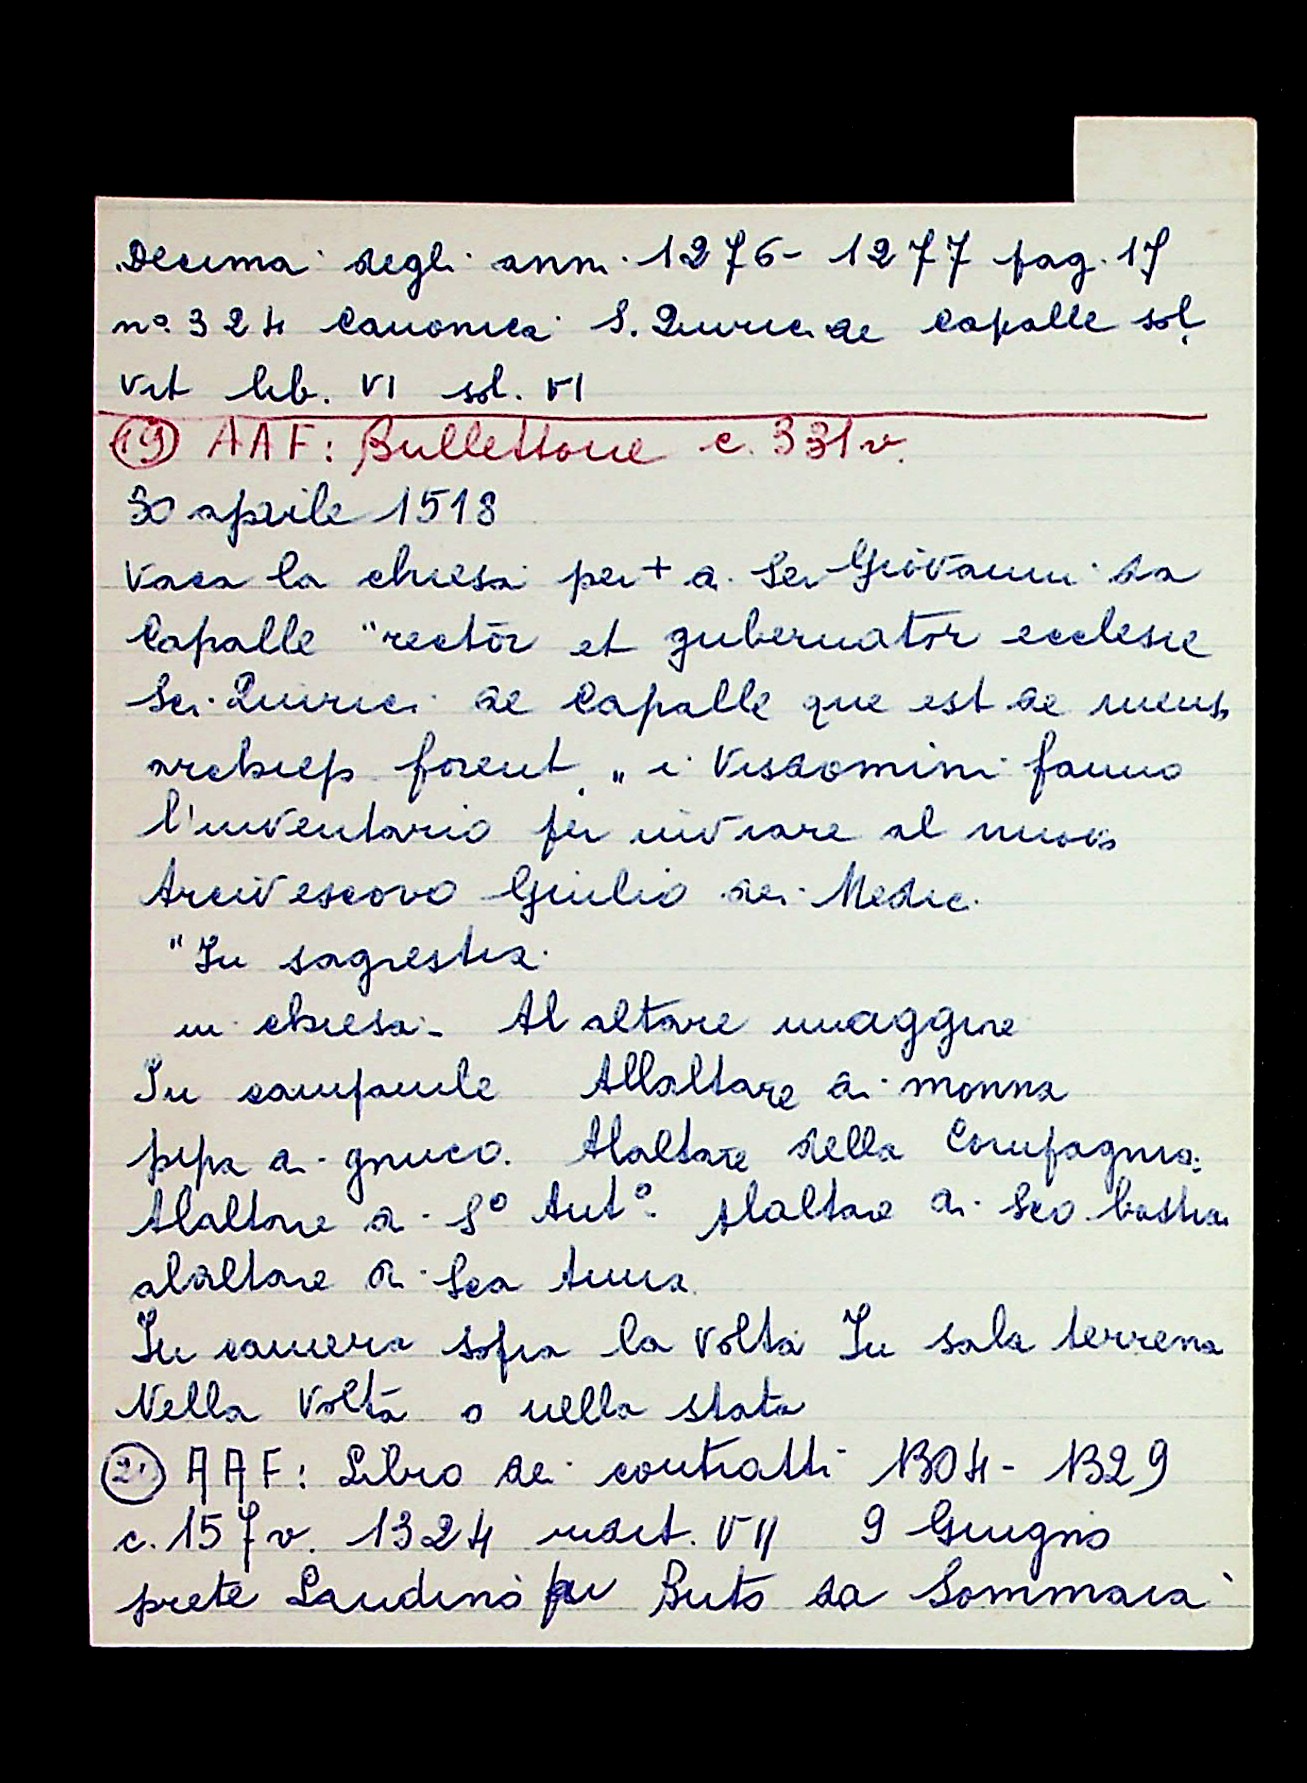 Decima degli anni 1276-1277 pag. 17
n° 324 Canonica S. Quirici de Capalle sol.
vit lib. VI sol. VI
19 AAF: Bullettone c. 331v.
30 aprile 1518
Vaca la chiesa per + di Ser Giovanni da
Capalle "rector et gubernator ecclesie
Sci. Quirici de Capalle que est de mens.
archiep. florent." i Visdomini fanno
l'inventario per inviare al nuovo
Arcivescovo Giulio dei Medici.
"In sagrestia.
in chiesa - Al altare maggiore
In campanile Allaltare di monna
pipa di gnuco. Alaltare della Compagnia.
Alaltare di S° Ant°. Alaltare di Sco bastia.
alaltare di Sca Anna.
In camera sopra la volta In sala terrena
Nella volta o nella stata
21 AAF: Libro dei contratti 1304-1329
c. 157v. 1324 indict. VII 9 Giugno
prete Landino Buto da Sommaia